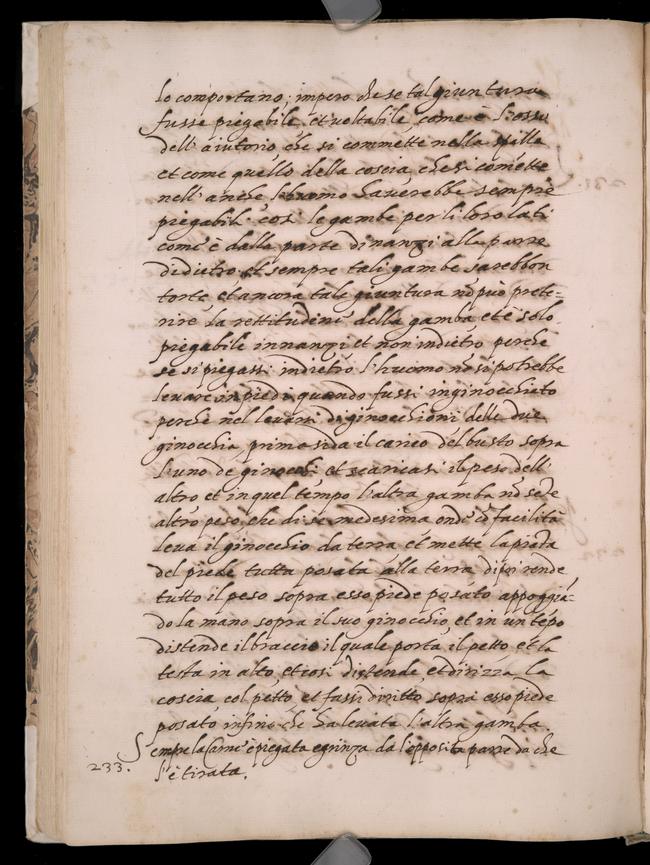 lo comportano; impero che se tal giuntura
fusse piegabile, et voltabile, come è l'osso
dell' aiutorio che si commette nella spalla
et come quello della coscia, che si comette
nell' anche l'huomo haverebbe sempre
piegabili così le gambe per li loro lati
come è dalla parte dinanzi alla parte
didietro et sempre tali gambe sarebbon
torte, et ancora tale giuntura nō può prete-
rire la rettitudine della gamba et è solo
piegabile innanzi et non indietro perche
se si piegassi indietro l'huomo nō si potrebbe
levare in piedi quando fussi inginocchiato
perchè nel levarsi di ginocchioni delle due
ginocchia prima si da il carico del busto sopra
l'uno de ginocchi et scaricasi il peso dell'
altro et in quel tempo l'altra gamba nō sente
altro peso che di se medesima onde cō facilità
leva il ginocchio da terra et mette la pianta
del piede tutta posata alla terra dipoi rende
tutto il peso sopra esso piede posato appoggiā-
do la mano sopra il suo ginocchio, et in un tēpo
distende il braccio il quale porta il petto et la
testa in alto, et così distende, et dirizza la
coscia col petto et fassi diritto sopra esso piede
posato infino che ha levata l'altra gamba.
Sempre la Carne è piegata e grinza da l'opposita parte da che
233. l'è tirata.